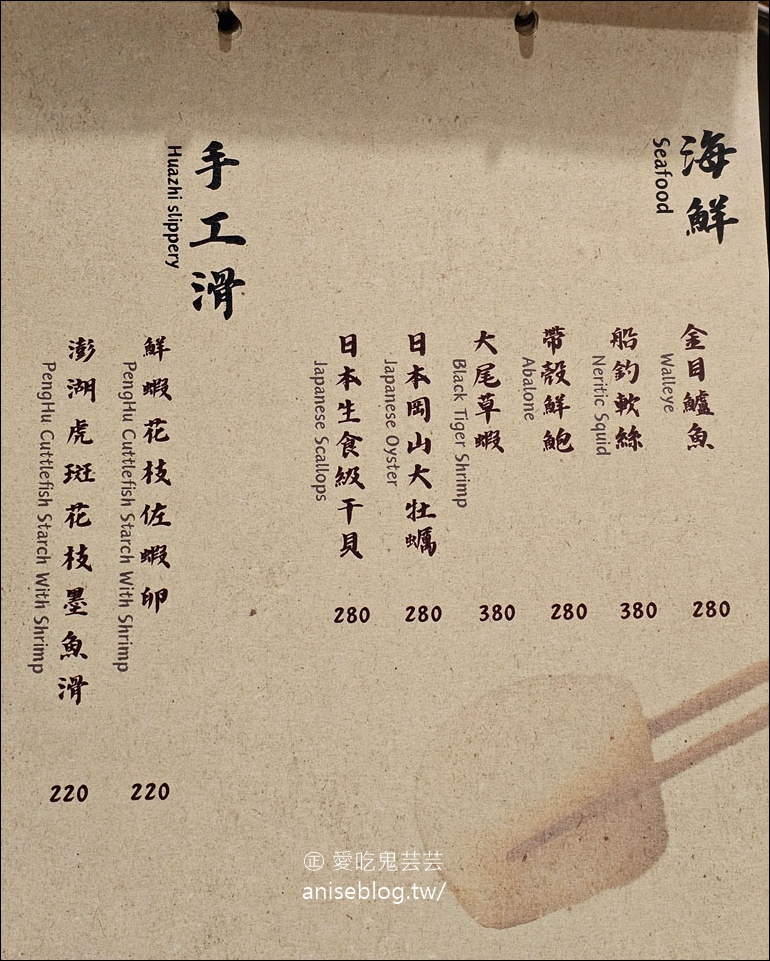 海鮮
Seafood
金目鱸魚
Walleye
280
船釣軟絲
Neritic Squid
380
帶殼鮮鮑
Abalone
280
大尾草蝦
Black Tiger Shrimp
380
日本岡山大牡蠣
Japanese Oyster
280
日本生食級干貝
Japanese Scallops
280
手工滑
Huazhi slippery
鮮蝦花枝佐蝦卵
PengHu Cuttlefish Starch With Shrimp
220
澎湖虎斑花枝墨魚滑
PengHu Cuttlefish Starch With Shrimp
220
㊣ 愛吃鬼芸芸
aniseblog.tw/